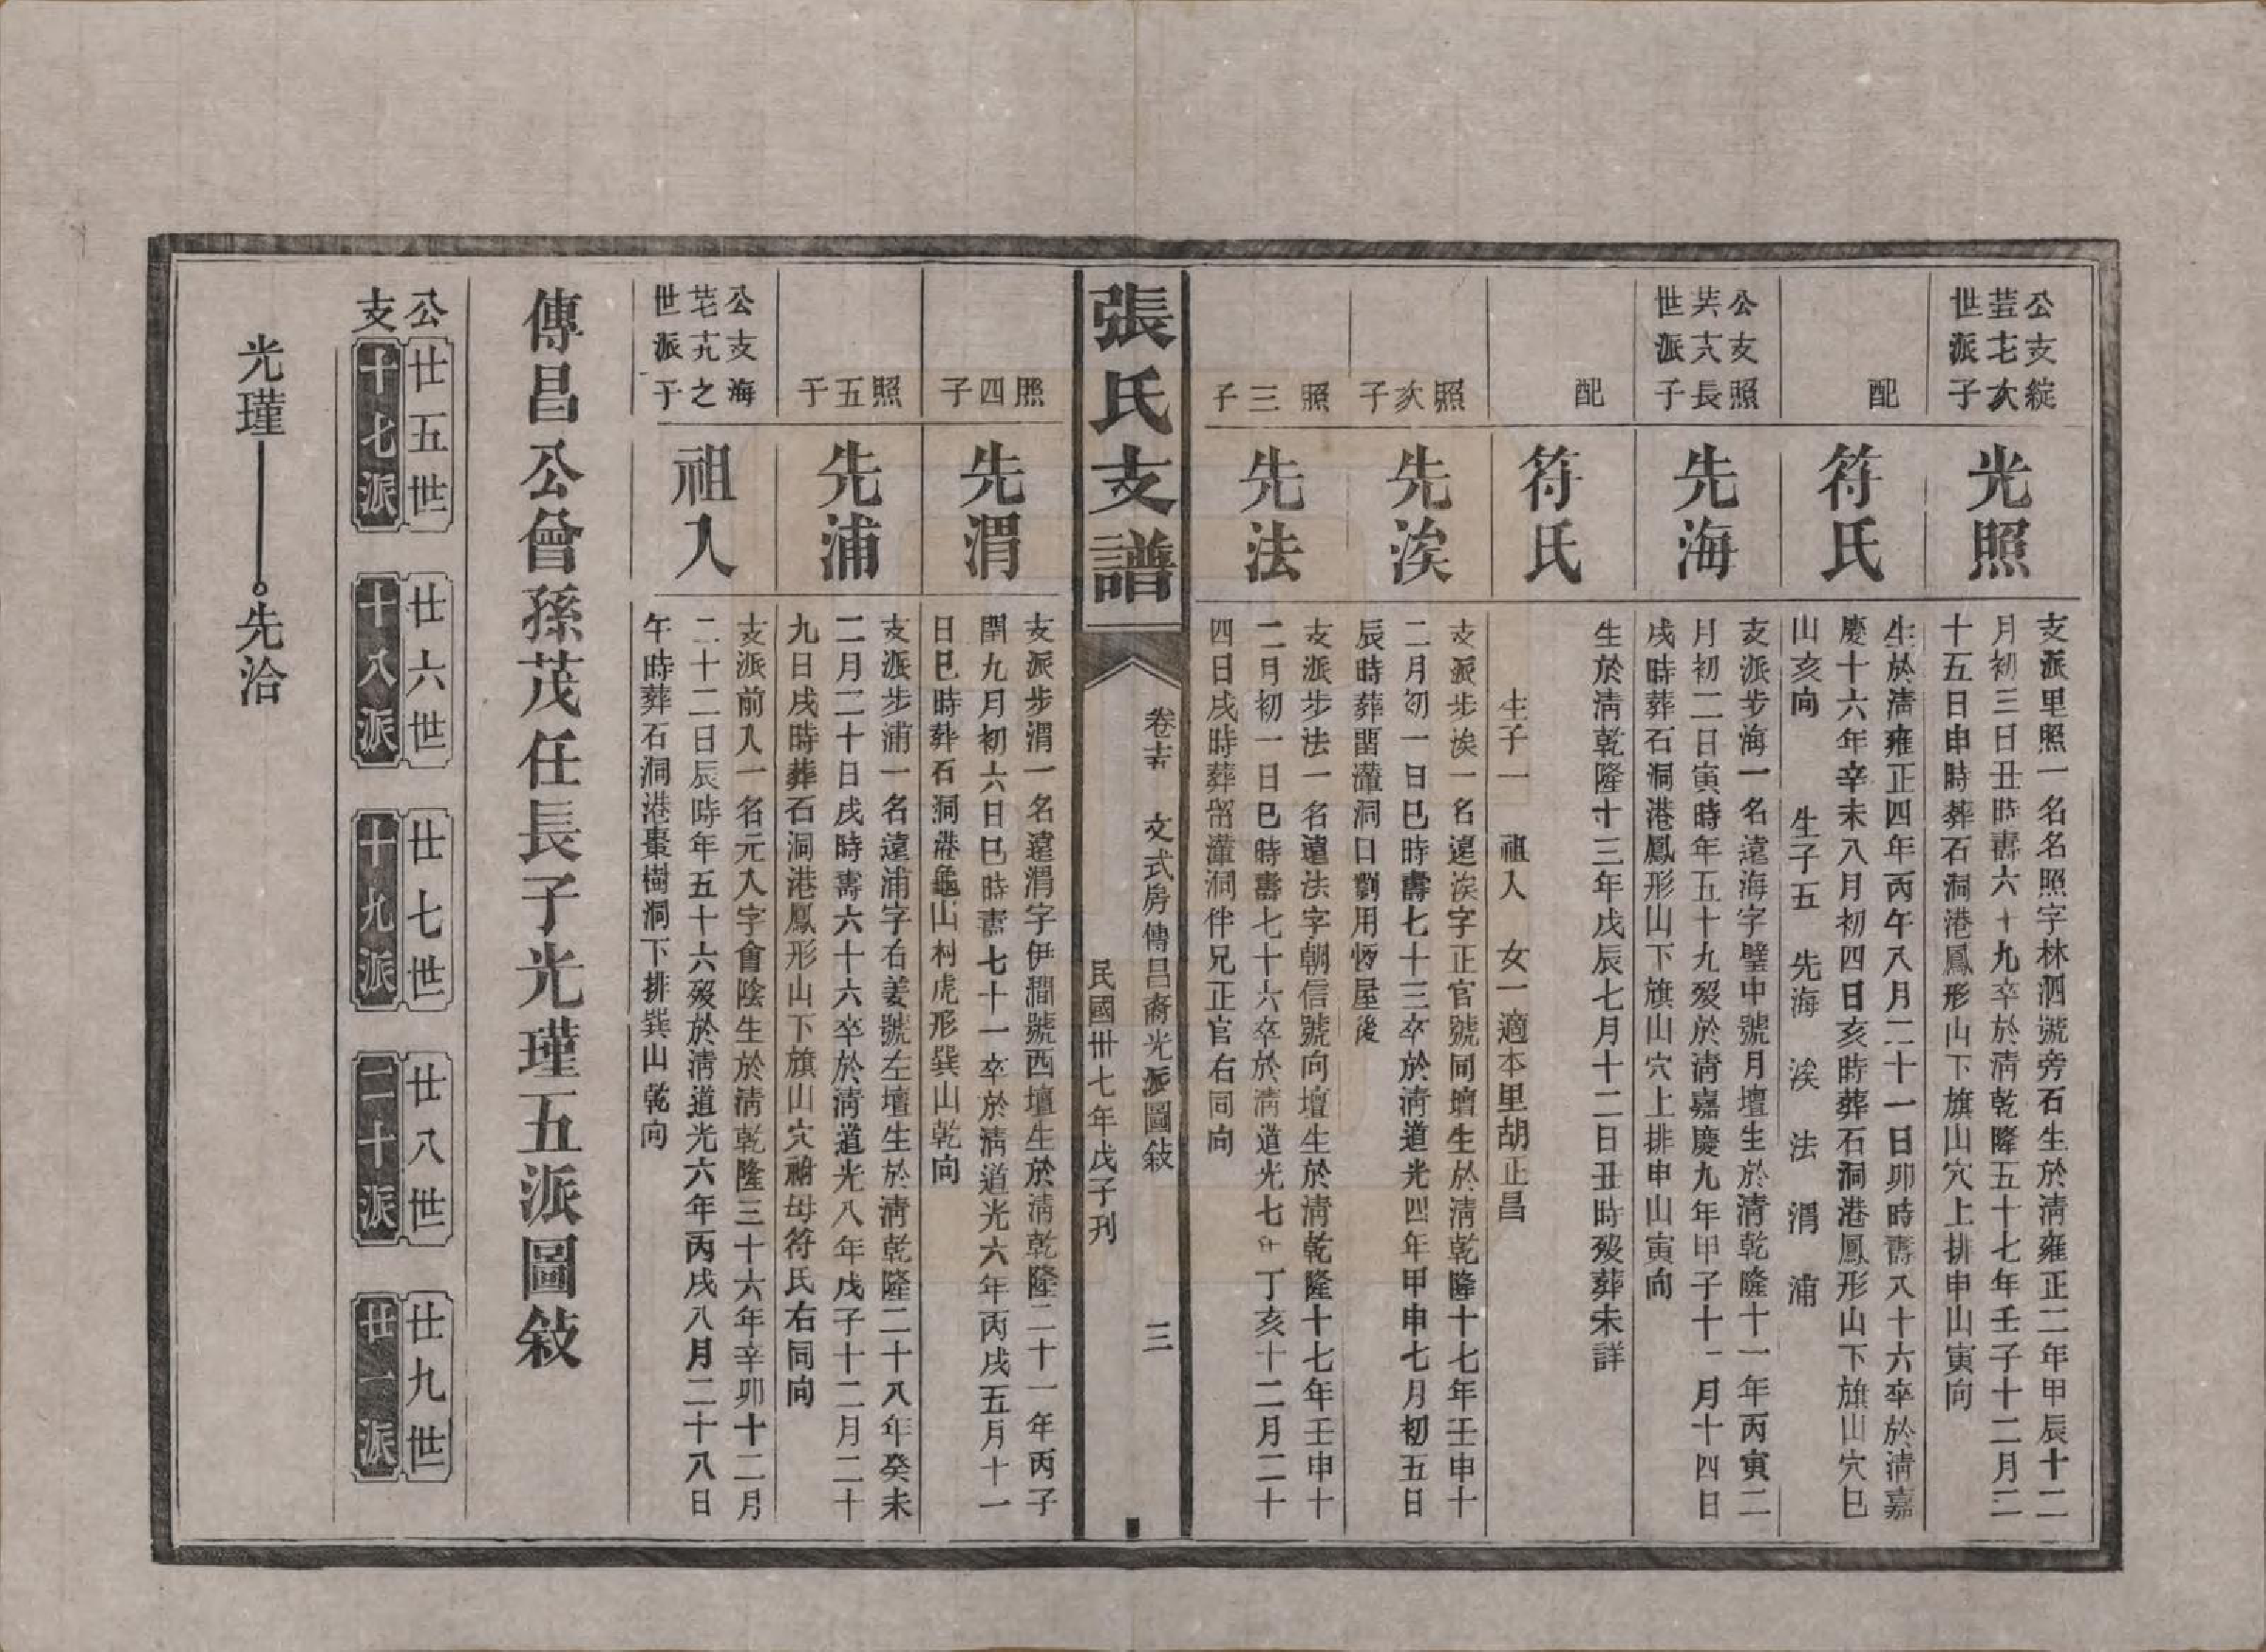 公支綻
芸七次
世派子
光照
支派里照一名名照字林泗號旁石生於淸雍正二年甲辰十二
月初三日丑時壽六十九卒於淸乾隆五十七年壬子十二月二
十五日申時葬石洞港鳳形山下旗山穴上排申山寅向
配
符氏
生於淸雍正四年丙午八月二十一日卯時壽八十六卒於淸嘉
慶十六年辛未八月初四日亥時葬石洞港鳳形山下旗山穴巳
山亥向 生子五 先海 涘 法 渭 浦
公支照
大長
世派子
先海
支派步海一名遠海字璧中號月壇生於淸乾隆十一年丙寅二
月初二日寅時年五十九歿於淸嘉慶九年甲子十一月十四日
戌時葬石洞港鳳形山下旗山穴上排申山寅向
配
符氏
生於淸乾隆十三年戊辰七月十二日丑時歿葬未詳
生子一 祖入 女一適本里胡正昌
照次子
先涘
支派步涘一名遠涘字正官號同壇生於淸乾隆十七年壬申十
二月初一日巳時壽七十三卒於淸道光四年甲申七月初五日
辰時葬畱灌洞口劉用屋後
照三子
先法
支派步法一名遠法字朝信號向壇生於淸乾隆十七年壬申十
二月初一日巳時壽七十六卒於淸道光七年丁亥十二月二十
四日戌時葬畱灌洞伴兄正官右同向
張氏支譜
卷 文式房傳昌裔光派圖敍 三
民國卅七年戊子刊
照四子
先渭
支派步渭一名遠渭字伊澗號西壇生於淸乾隆二十一年丙子
閏九月初六日巳時壽七十一卒於淸道光六年丙戌五月十一
日巳時葬石洞港龜山村虎形巽山乾向
照五子
先浦
支派步浦一名遠浦字右姜號左壇生於淸乾隆二十八年癸未
二月二十日戌時壽六十六卒於淸道光八年戊子十二月二十
九日戌時葬石洞港鳳形山下旗山穴祔母符氏右同向
公支海
之
世派子
祖入
支派前入一名元入字會陰生於淸乾隆三十六年辛卯十二月
二十二日辰時年五十六歿於淸道光六年丙戌八月二十八日
午時葬石洞港棗樹洞下排巽山乾向
傳昌公曾孫茂任長子光瑾五派圖敍
公支
廿五世 廿六世 廿七世 廿八世 廿九世
十七派 十八派 十九派 二十派 廿一派
光瑾 先治